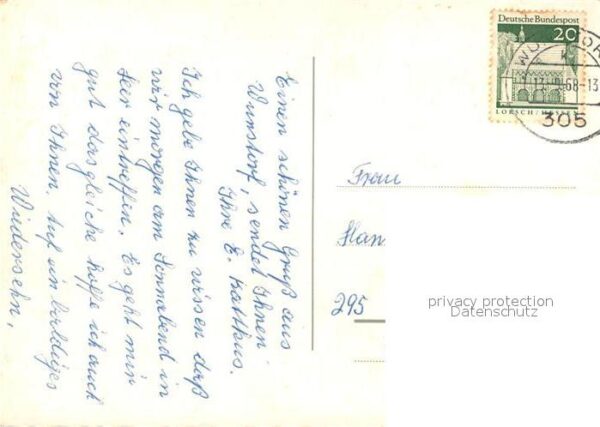 Einen schönen Gruß aus
Wunstorf, sendet Ihnen
Ihre E. Katthus.
Ich gebe Ihnen zu wissen daß
wir morgen am Sonnabend in
Leer eintreffen. Es geht mir
gut dasgleiche hoffe ich auch
von Ihnen. Auf ein baldiges
Wiedersehn,
Deutsche Bundespost
20
LORSCH/HESSEN
68-13
305
Frau
Han
295
privacy protection
Datenschutz